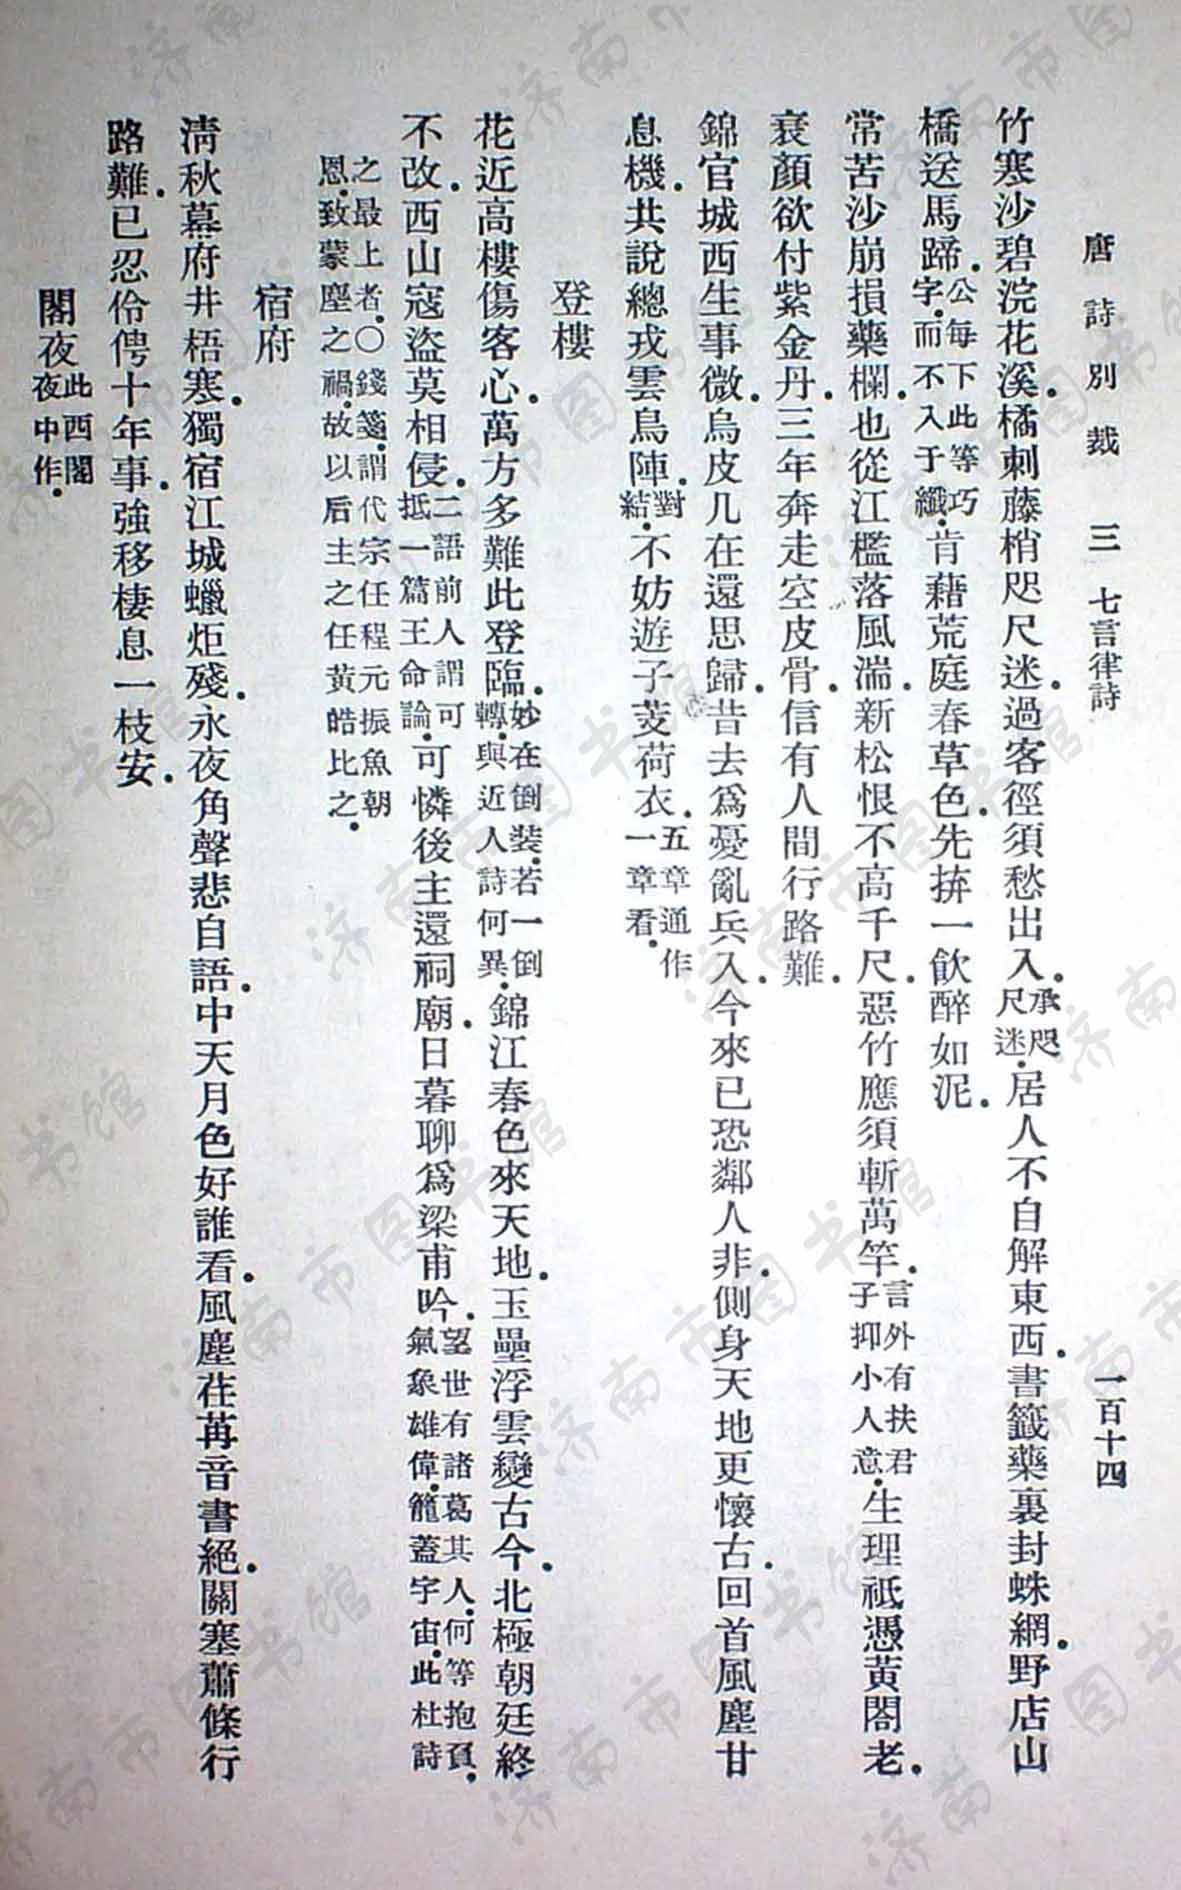 唐詩別裁 三 七言律詩 一百十四
竹寒沙碧浣花溪．橘刺藤梢咫尺迷．過客徑須愁出入．承咫尺迷．居人不自解東西．書籤藥裹封蛛網．野店山
橋送馬蹄．公每下此等巧字．而不入于纖．肯藉荒庭春草色．先拚一飲醉如泥．
常苦沙崩損藥欄．也從江檻落風湍．新松恨不高千尺．惡竹應須斬萬竿．言外有扶君子抑小人意．生理祗憑黃閣老．
衰顏欲付紫金丹．三年奔走空皮骨．信有人間行路難．
錦官城西生事微．烏皮几在還思歸．昔去為憂亂兵入．今來已恐鄰人非．側身天地更懷古．回首風塵甘
息機．共說總戎雲鳥陣．對結．不妨遊子芰荷衣．五章通作一章看．
登樓
花近高樓傷客心．萬方多難此登臨．妙在倒裝．若一倒轉．與近人詩何異．錦江春色來天地．玉壘浮雲變古今．北極朝廷終
不改．西山寇盜莫相侵．二語前人謂可抵一篇王命論．可憐後主還祠廟．日暮聊為梁甫吟．望世有諸葛其人．何等抱負．氣象雄偉．籠蓋宇宙．此杜詩
之最上者．〇錢箋．謂代宗任程元振魚朝恩．致蒙塵之禍．故以后主之任黃皓比之．
宿府
清秋幕府井梧寒．獨宿江城蠟炬殘．永夜角聲悲自語．中天月色好誰看．風塵荏苒音書絕．關塞蕭條行
路難．已忍伶俜十年事．強移棲息一枝安．
閣夜此西閣夜中作．
济南市图书馆